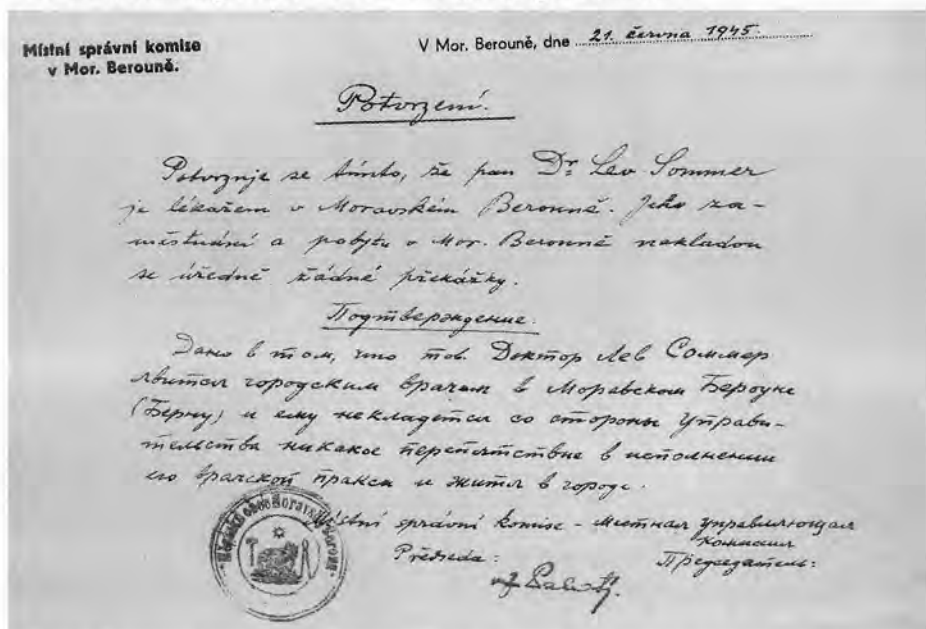 Místní správní komise
v Mor. Berouně.
V Mor. Berouně, dne 21. června 1945.
Potvrzení.
Potvrzuje se tímto, že pan Dr. Lev Sommer
je lékařem v Moravském Berouně. Jeho za-
městnání a pobytu v Mor. Berouně nekladou
se úředně žádné překážky.
Подтверждение.
Дано в том, что тов. Доктор Лев Соммер
является городским врачам в Моравском Бероуне
(Берну) и ему некладется со стороны Управи-
тельства никакое перепятствие в исполнении
его врачской пракси и жития в городе.
Místní správní komise - Местная управляющая
комиссия
Předseda:
Председатель:
Městská obec Moravský Beroun